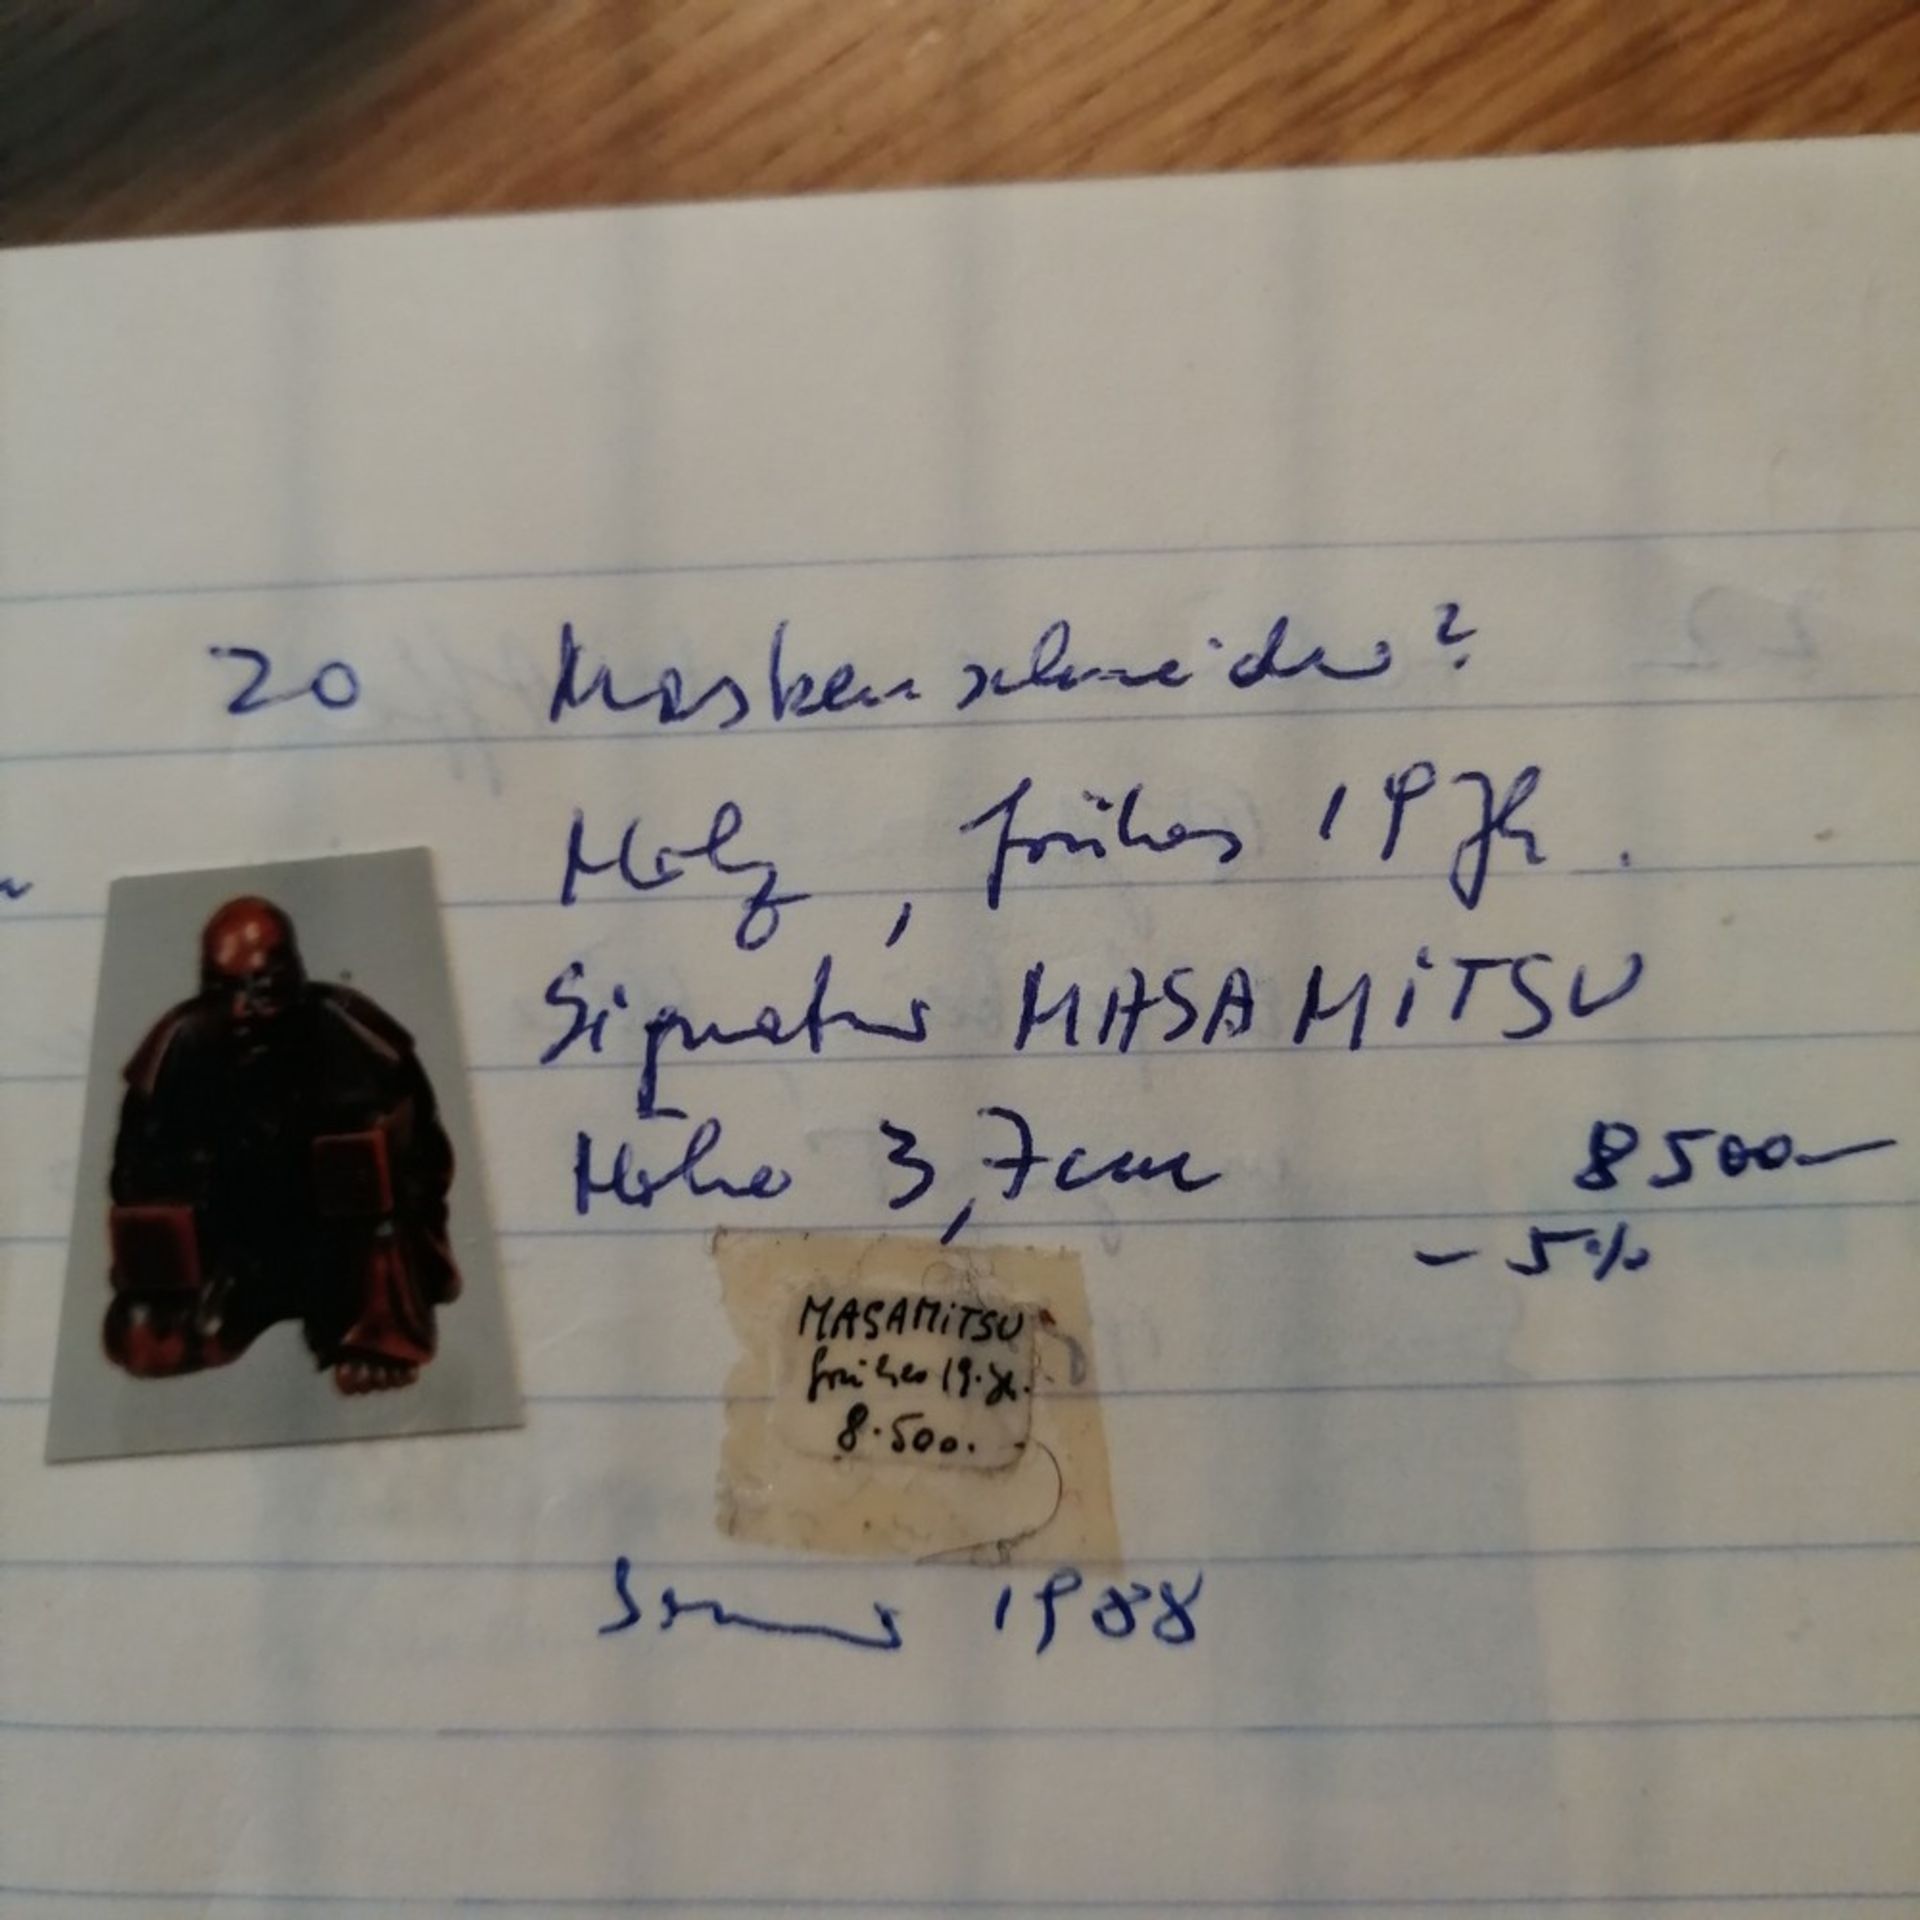 20 Maskenschneider?
Holz, frühes 19 Jh.
Signatur MASAMiTSU
Höhe 3,7cm 8500—
- 5%
MASAMiTSU
frühes 19. Jh.
8.500.
1988